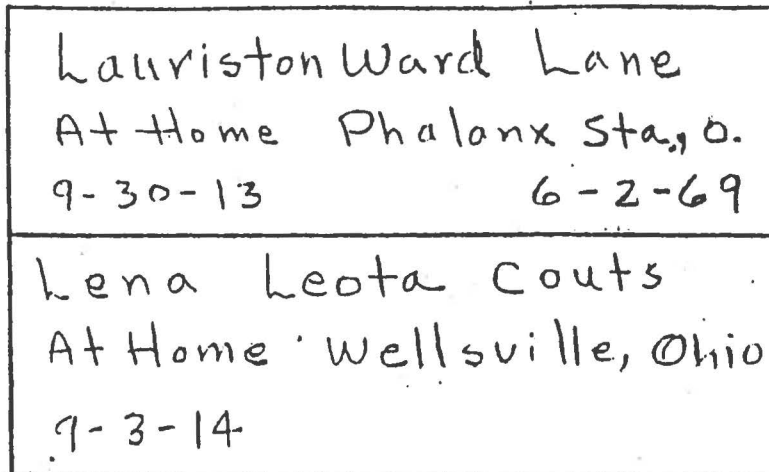 Lauriston Ward Lane
At Home Phalanx Sta., O.
9-30-13 6-2-69
Lena Leota Couts
At Home Wellsville, Ohio
9-3-14